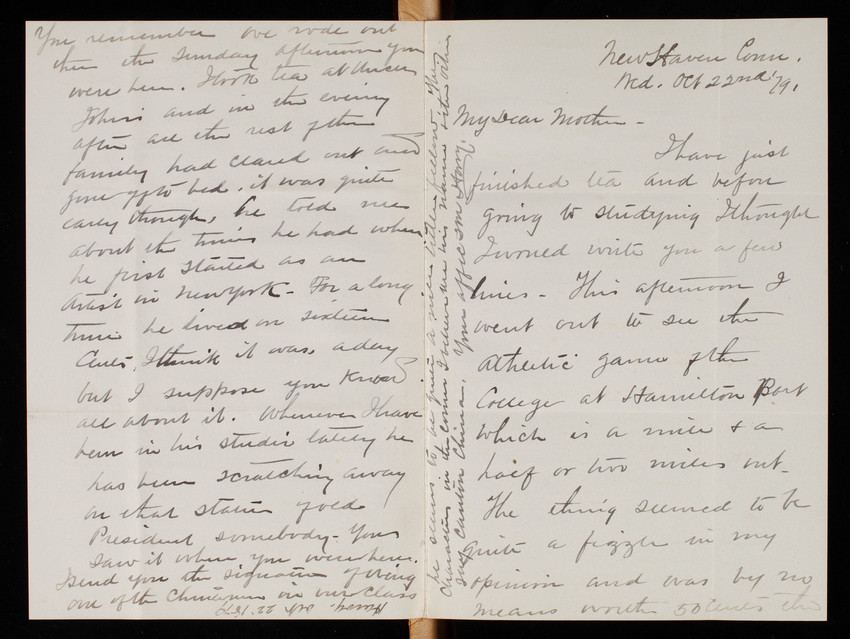 New Haven Conn.
Wed. Oct 22nd '79.
My Dear Mother -
I have just
finished tea and before
going to studying I thought
I would write you a few
lines - This afternoon I
went out to see the
athletic game of the
College at Hamilton Park
which is a mile & a
half or two miles out.
The thing seemed to be
quite a fizzle in my
opinion and was by no
means worth 50 cents the
You remember we rode out
there the Sunday afternoon you
were here. I took tea at Uncle
John's and in the evening
after all the rest of the
family had cleared out and
gone off to bed, it was quite
early though, he told me
about the times he had when
he first started as an
artist in New York - For a long
time he lived on sixteen
cents, I think it was, a day
but I suppose you know
all about it. Whenever I have
been in his studio lately he
has been scratching away
on that statue of old
President somebody - You
saw it when you were here.
I send you the signature of
one of the Chinamen in our class
he seems to be quite a nice little fellow. The
characters in the corner I believe are his name & the others
say Canton China. Your affec son Harry.
Harry - Oct. 22. 1879